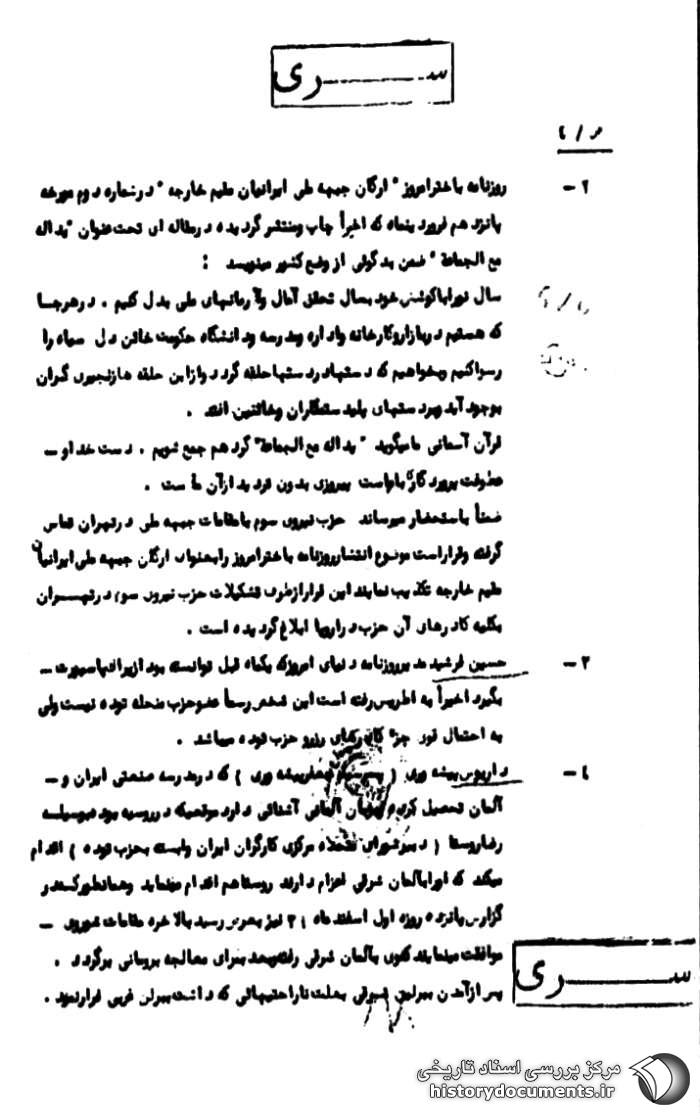 ســـری
۲ـ روزنامه باخترامروز " ارگان جبهه ملی ایرانیان مقیم خارجه " در شماره دوم مورخه
پانزدهم فروردینماه که اخیراً چاپ ومنتشر گردیده در مقاله ای تحت عنوان "یداله
مع الجماعة " ضمن بدگوئی از وضع کشور مینویسد :
سال نورا باکوشش خود بسال تحقق آمال وآرمانهای ملی بدل کنیم . در هرجا
که هستیم در بازار وکارخانه واداره ومدرسه ودانشگاه حکومت خائن دل سیاه را
رسوا کنیم وبخواهیم که دستها در دستها حلقه گردد واز این حلقه ها زنجیری گران
بوجود آید وبر دستهای پلید ستمگاران وخائنین افتد .
قرآن آسمانی ما میگوید " یداله مع الجماعة " گرد هم جمع شویم . دست خدا و ـ
عطوفت پروردگار باماست پیروزی بدون تردید از آن ماست .
ضمناً باستحضار میرساند حزب نیروی سوم بامقامات جبهه ملی در تهران تماس
گرفته وقرار است موضوع انتشار روزنامه باخترامروز رابعنوان ارگان جبهه ملی ایرانیان
مقیم خارجه تکذیب نمایند این قرار از طرف تشکیلات حزب نیروی سوم در تهــران
بکلیه کادرهای آن حزب در اروپا ابلاغ گردیده است .
۳ـ حسین فرشید مدیر روزنامه دنیای امروز که یکماه قبل توانسته بود از ایران پاسپورت ـ
بگیرد اخیراً به اطریش رفته است این شخص رسماً عضو حزب منحله توده نیست ولی
به احتمال قوی جزء کادرهای رزرو حزب توده میباشد .
٤ـ داریوش پیشه وری ( پیشه وری ) که در مدرسه صنعتی ایران و ـ
آلمان تحصیل کرده آلمانی آشنائی دارد موقعیکه در روسیه بود بوسیله
رضا روستا ( دبیر شورای متحده مرکزی کارگران ایران وابسته بحزب توده ) اقدام
میکند که اورا بآلمان شرقی اعزام دارند روستا هم اقدام مینماید وهمانطور که در
گزارش پانزده روزه اول اسفند ماه نیز بعرض رسید بالاخره مقامات شوروی ـ
موافقت مینمایند بآلمان شرقی رفته وبعد برای معالجه برومانی برگردد .
پس از آمدن ببرلین شرقی بعلت ناراحتیهائی که داشت ببرلن غربی فرار نمود .
ســـری
مرکز بررسی اسناد تاریخی
historydocuments.ir